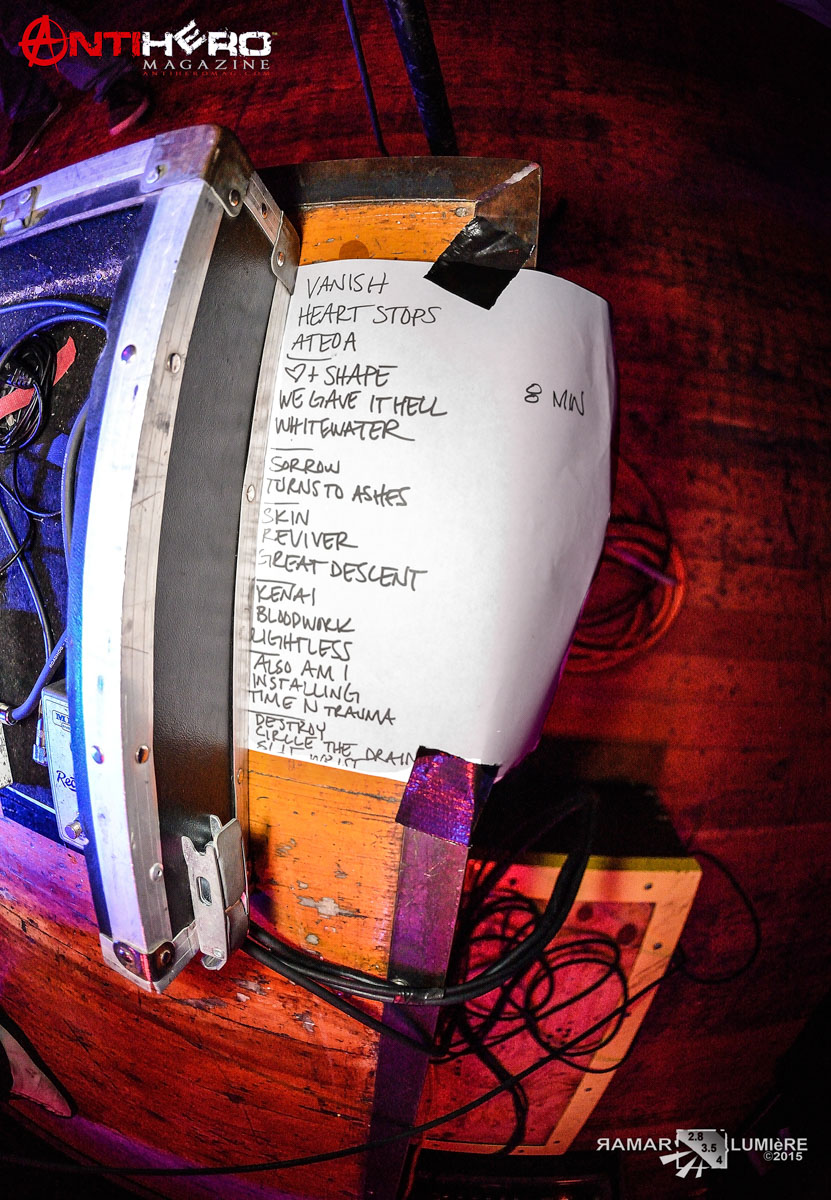 ANTIHERO
MAGAZINE
ANTIHEROMAG.COM
VANISH
HEART STOPS
ATEOA
♡ + SHAPE
WE GAVE IT HELL
8 MIN
WHITEWATER
SORROW
TURNS TO ASHES
SKIN
REVIVER
GREAT DESCENT
KENAI
BLOODWORK
LIGHTLESS
ALSO AM I
INSTALLING
TIME N TRAUMA
DESTROY
CIRCLE THE DRAIN
SLIT WRIST
ЯAMAR LUMIèRE
2.8
3.5
4
©2015